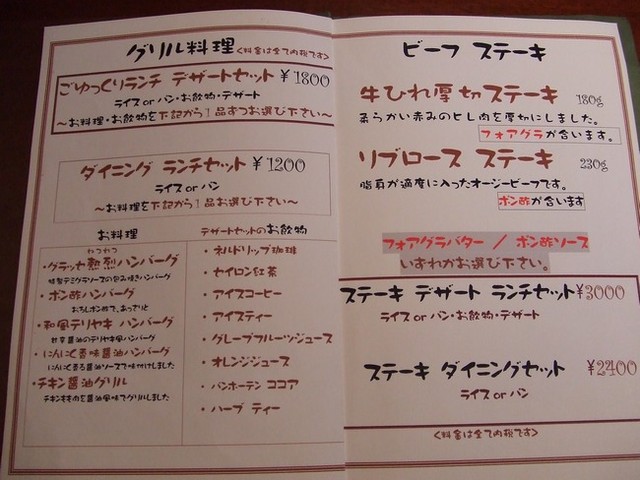 グリル料理 <料金は全て内税です>
ごゆっくりランチ デザートセット ¥1800
ライス or パン・お飲物・デザート
～お料理・お飲物を下記から1品ずつお選び下さい～
ダイニング ランチセット ¥1200
ライス or パン
～お料理を下記から1品お選び下さい～
お料理
・グラッセ熱烈ハンバーグ
特製デミグラソースの包み焼きハンバーグ
・ポン酢ハンバーグ
おろしポン酢で、あっさりと
・和風テリヤキ ハンバーグ
甘辛醤油のテリヤキ風ハンバーグ
・にんにく香味醤油ハンバーグ
にんにく香る醤油ソースで味付けしました
・チキン醤油グリル
チキンもも肉を醤油風味でグリルしました
デザートセットのお飲物
・ネルドリップ珈琲
・セイロン紅茶
・アイスコーヒー
・アイスティー
・グレープフルーツジュース
・オレンジジュース
・バンホーテン ココア
・ハーブ ティー
ビーフ ステーキ
牛ひれ厚切ステーキ 180g
柔らかい赤みのヒレ肉を厚切にしました。
フォアグラが合います。
リブロース ステーキ 230g
脂身が適度に入ったオージービーフです。
ポン酢が合います
フォアグラバター / ポン酢ソース
いずれかお選び下さい。
ステーキ デザート ランチセット ¥3000
ライス or パン・お飲物・デザート
ステーキ ダイニングセット ¥2400
ライス or パン
<料金は全て内税です>